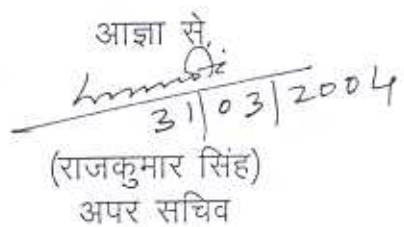 आज्ञा से,
31/03/2004
(राजकुमार सिंह)
अपर सचिव